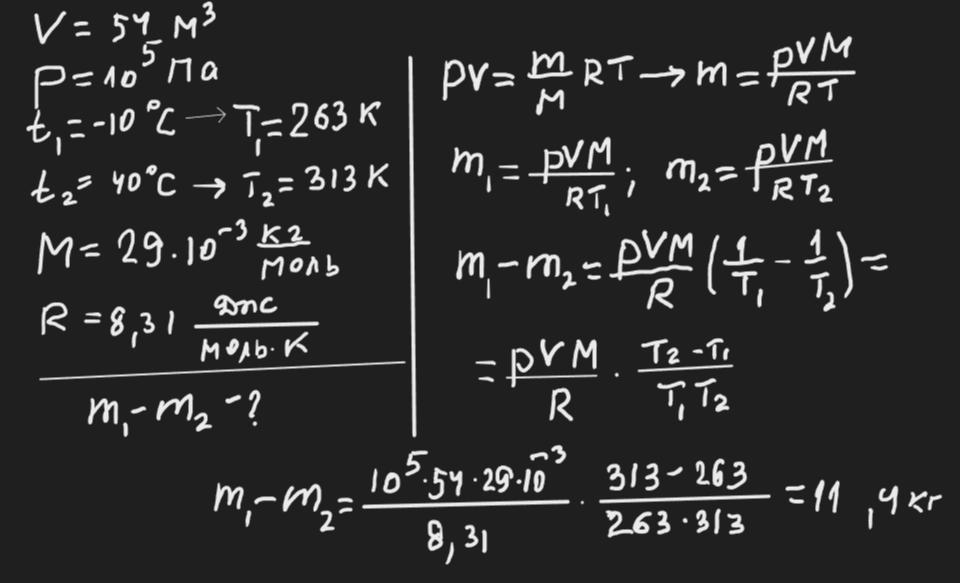 V = 54 м³
P = 10⁵ Па
t₁ = -10 °C → T₁ = 263 К
t₂ = 40°C → T₂ = 313 К
M = 29·10⁻³ кг/моль
R = 8,31 Дж/моль·К
m₁ - m₂ - ?
pV = m/M RT → m = pVM/RT
m₁ = pVM/RT₁; m₂ = pVM/RT₂
m₁ - m₂ = pVM/R (1/T₁ - 1/T₂) =
= pVM/R · T₂ - T₁/T₁T₂
m₁ - m₂ = 10⁵·54·29·10⁻³/8,31 · 313 - 263/263·313 = 11,4 кг